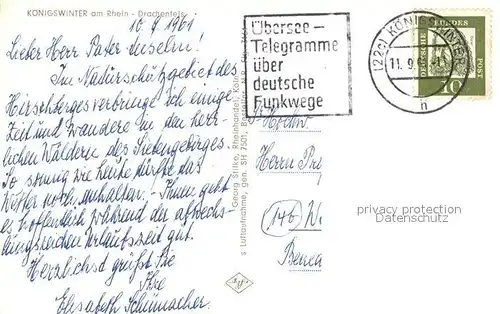 KÖNIGSWINTER am Rhein - Drachenfels
10. 9. 1961
Lieber Herr Pater Anselm!
Im Naturschutzgebiet des
Hirschberges verbringe ich einige
Zeit und wandere in den herr-
lichen Wäldern des Siebengebirges.
So sonnig wie heute dürfte das
Wetter noch anhalten. - Ihnen geht
es hoffentlich während der abwechs-
lungsreichen Urlaubszeit gut.
Herzlichst grüßt Sie
Ihre
Elisabeth Schumacher.
Georg Stilke, Rheinhandel, Köln
s Luftaufnahme, gen. SH 7501,
Übersee-
Telegramme
über
deutsche
Funkwege
(22c) KÖNIGSWINTER
11. 9.
h
DEUTSCHE BUNDESPOST
10
Hochw
Herrn
(14b)
privacy protection
Datenschutz